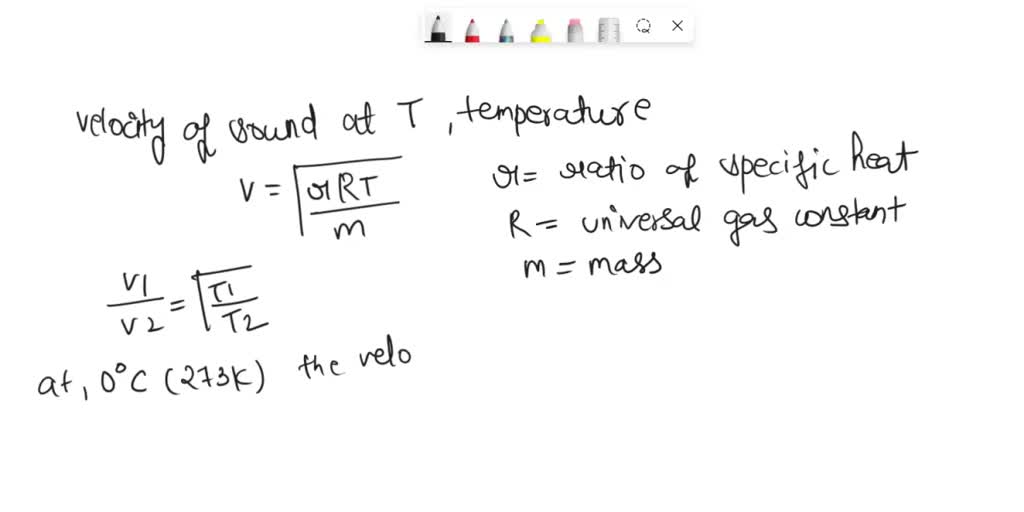 velocity of sound at T, temperature
V = √(rRT/m)
r = ratio of specific heat
R = universal gas constant
m = mass
V1/V2 = √(T1/T2)
at, 0°C (273K) the velo